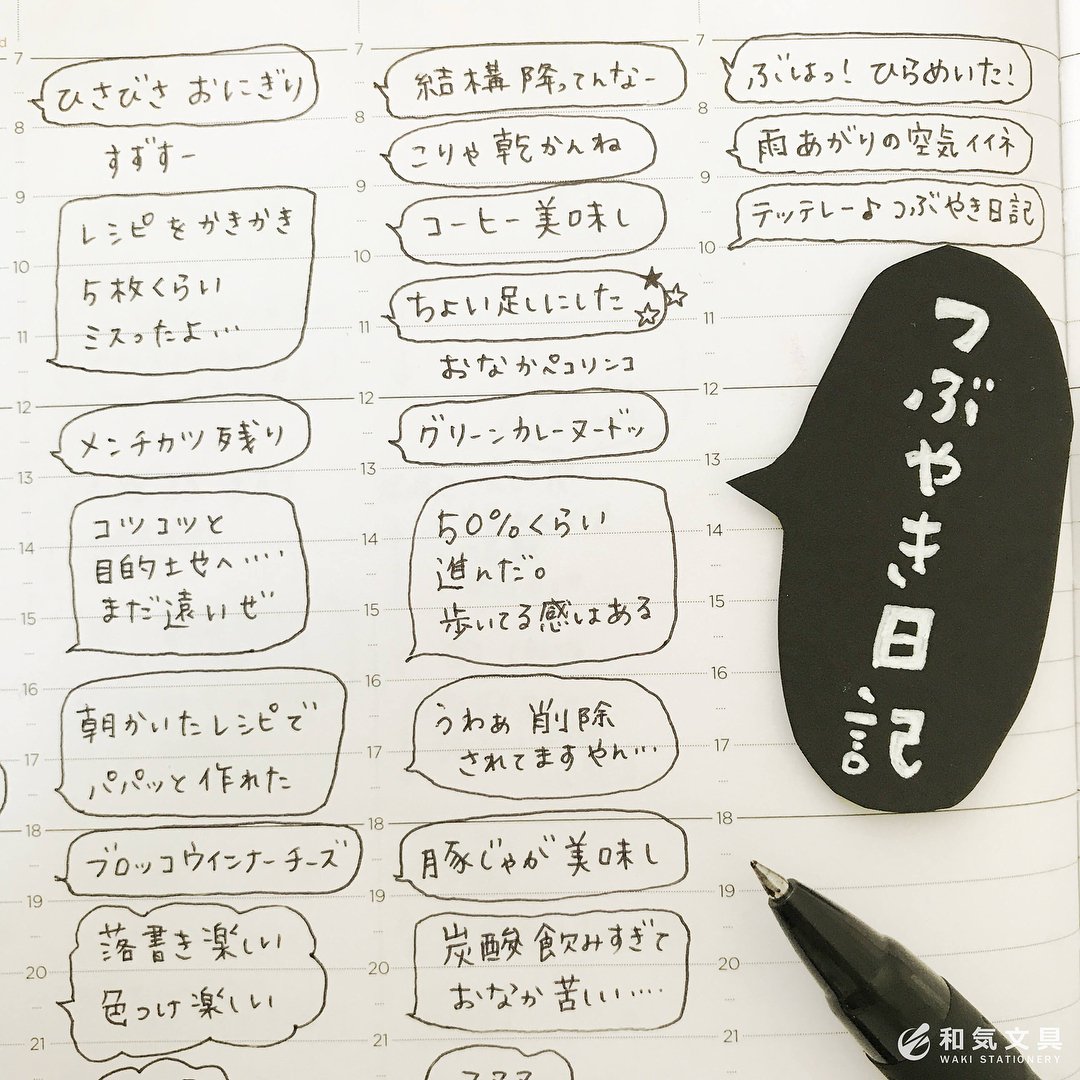 ひさびさ おにぎり
すずずー
レシピをかきかき
5枚くらい
ミスったよ…
メンチカツ残り
コツコツと
目的地へ‥‥
まだ遠いぜ
朝かいたレシピで
パパッと作れた
ブロッコウインナーチーズ
落書き楽しい
色つけ楽しい
結構降ってんなー
こりゃ乾かんね
コーヒー美味し
ちょい足しにした
おなかペコリンコ
グリーンカレーヌードッ
50%くらい
進んだ。
歩いてる感はある
うわぁ削除
されてますやん…
豚じゃが美味し
炭酸飲みすぎて
おなか苦しい‥‥
ぶはっ!ひらめいた!
雨あがりの空気イイネ
テッテレー♪つぶやき日記
つぶやき日記
7
8
9
10
11
12
13
14
15
16
17
18
19
20
21
7
8
9
10
11
12
13
14
15
16
17
18
19
20
21
7
8
9
10
11
12
13
14
15
16
17
18
19
20
和気文具
WAKI STATIONERY